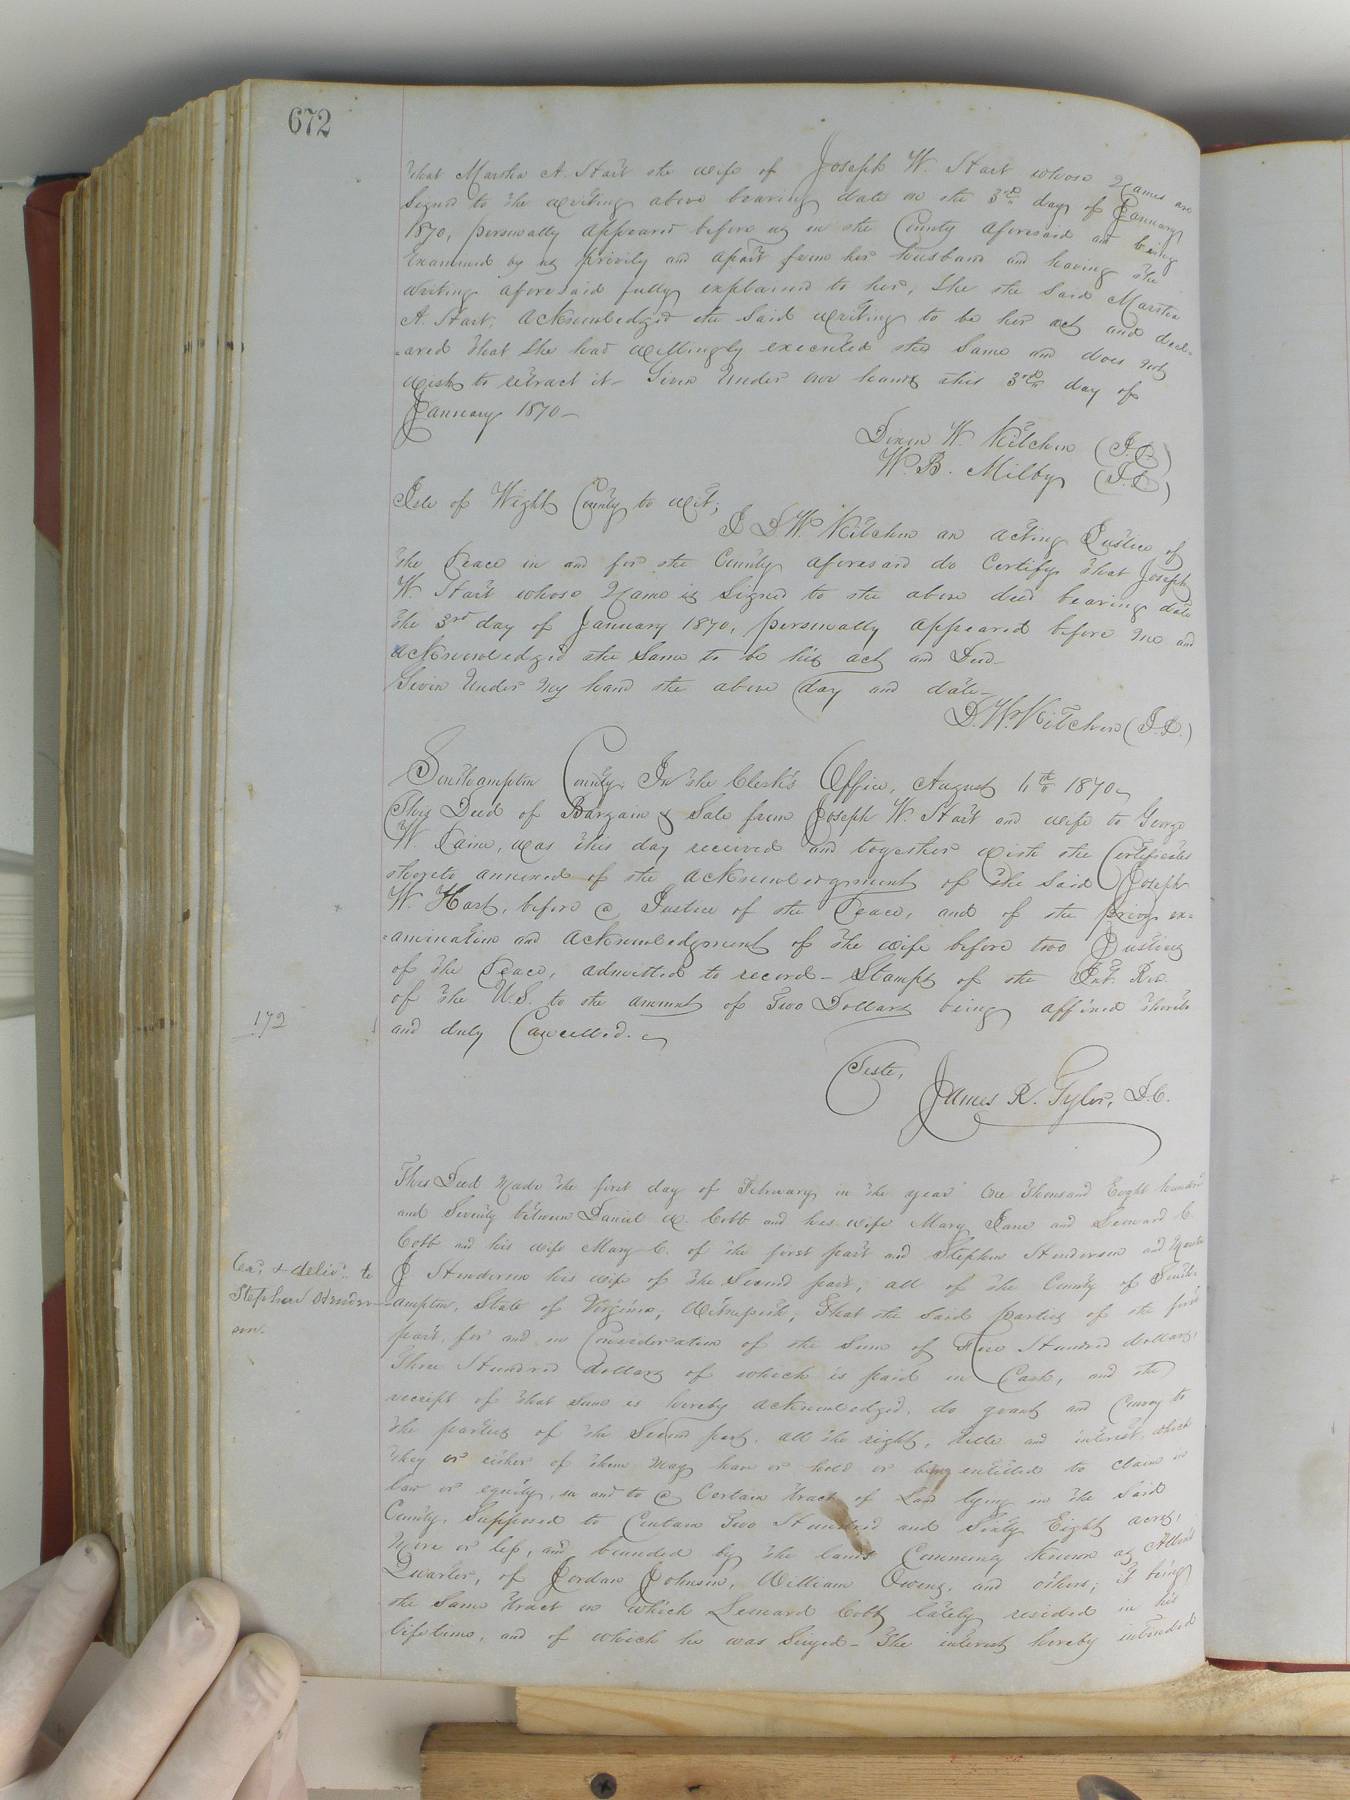 672
that Martha A. Hart the wife of Joseph W. Hart whose Names are
Signed to the writing above bearing date on the 3rd day of January
1870, personally appeared before us in the County aforesaid and being
Examined by us privily and apart from her husband and having the
writing aforesaid fully explained to her, She the Said Martha
A. Hart, acknowledged the Said writing to be her act and decl-
-ared that She had willingly executed the Same and does not
wish to retract it - Given Under our hands this 3rd day of
January 1870 -
Dixon W. Kitchen (J.P.)
W. B. Milby (J.P.)
Isle of Wight County to wit;
I D. W. Kitchen an acting Justice of
the Peace in and for the County aforesaid do Certify that Joseph
W. Hart whose Name is Signed to the above deed bearing date
the 3rd day of January 1870, personally appeared before me and
acknowledged the Same to be his act and Deed -
Given Under My hand the above day and date -
D. W. Kitchen (J.P.)
Southampton County, In the Clerk's Office, August 11th 1870 -
This Deed of Bargain & Sale from Joseph W. Hart and wife to George
W. Paine, was this day received and together with the Certificates
thereto annexed of the acknowledgment of the Said Joseph
W Hart, before a Justice of the Peace, and of the privy ex=
=amination and acknowledgment of the wife before two Justices
of the Peace, admitted to record - Stamps of the Int. Rev.
of the U.S. to the amount of Two Dollars being affixed thereto
172
and duly Cancelled. -
Teste,
James R. Tyler, D.C.
This Deed Made the first day of February in the year One Thousand Eight hundred
and Seventy between Daniel W. Cobb and his wife Mary Jane and Leonard C.
Cobb and his wife Mary C. of the first part and Stephen Henderson and
J Henderson his wife of the Second part, all of the County of South-
Exd. & delivd. to
Stephen Hender-
son.
-ampton, State of Virginia, Witnesseth, That the Said parties of the first
part, for and in Consideration of the Sum of Five Hundred dollars,
Three Hundred dollars of which is paid in Cash, and the
receipt of that Sum is hereby acknowledged, do grant and Convey to
the parties of the Second part, all the right, title and interest, which
they or either of them may have or hold or being entitled to claim in
law or equity, in and to a Certain tract of Land lying in the Said
County, Supposed to Contain Two Hundred and Sixty Eight acres,
More or less, and bounded by the lands Commonly Known as
Quarter, of Jordan Johnson, William Owens, and others, it being
the Same tract on which Leonard Cobb lately resided in his
lifetime, and of which he was Siezed - The interest hereby intended